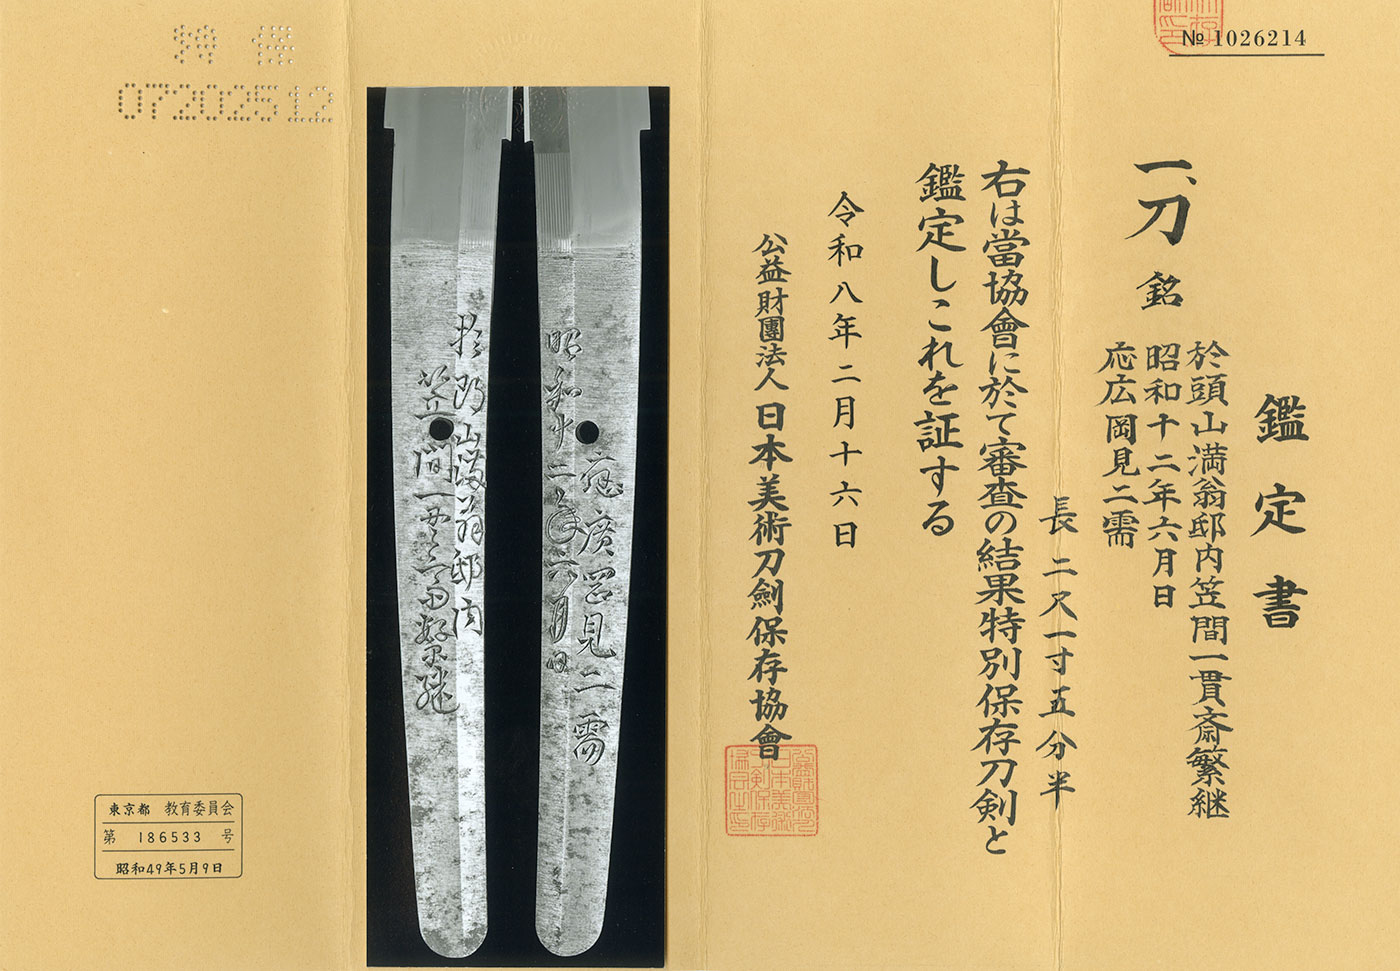 № 1026214
鑑定書
一、刀 銘
於頭山満翁邸内笠間一貫斎繁継
昭和十二年六月日
応広岡見二需
長 二尺一寸五分半
右は當協會に於て審査の結果特別保存刀剣と
鑑定しこれを証する
令和八年二月十六日
公益財團法人 日本美術刀劍保存協會
昭和十二年六月日
應廣岡見二需
於頭山満翁邸内
笠間一貫斎繁継
特保
07202512
東京都 教育委員会
第 186533 号
昭和49年5月9日